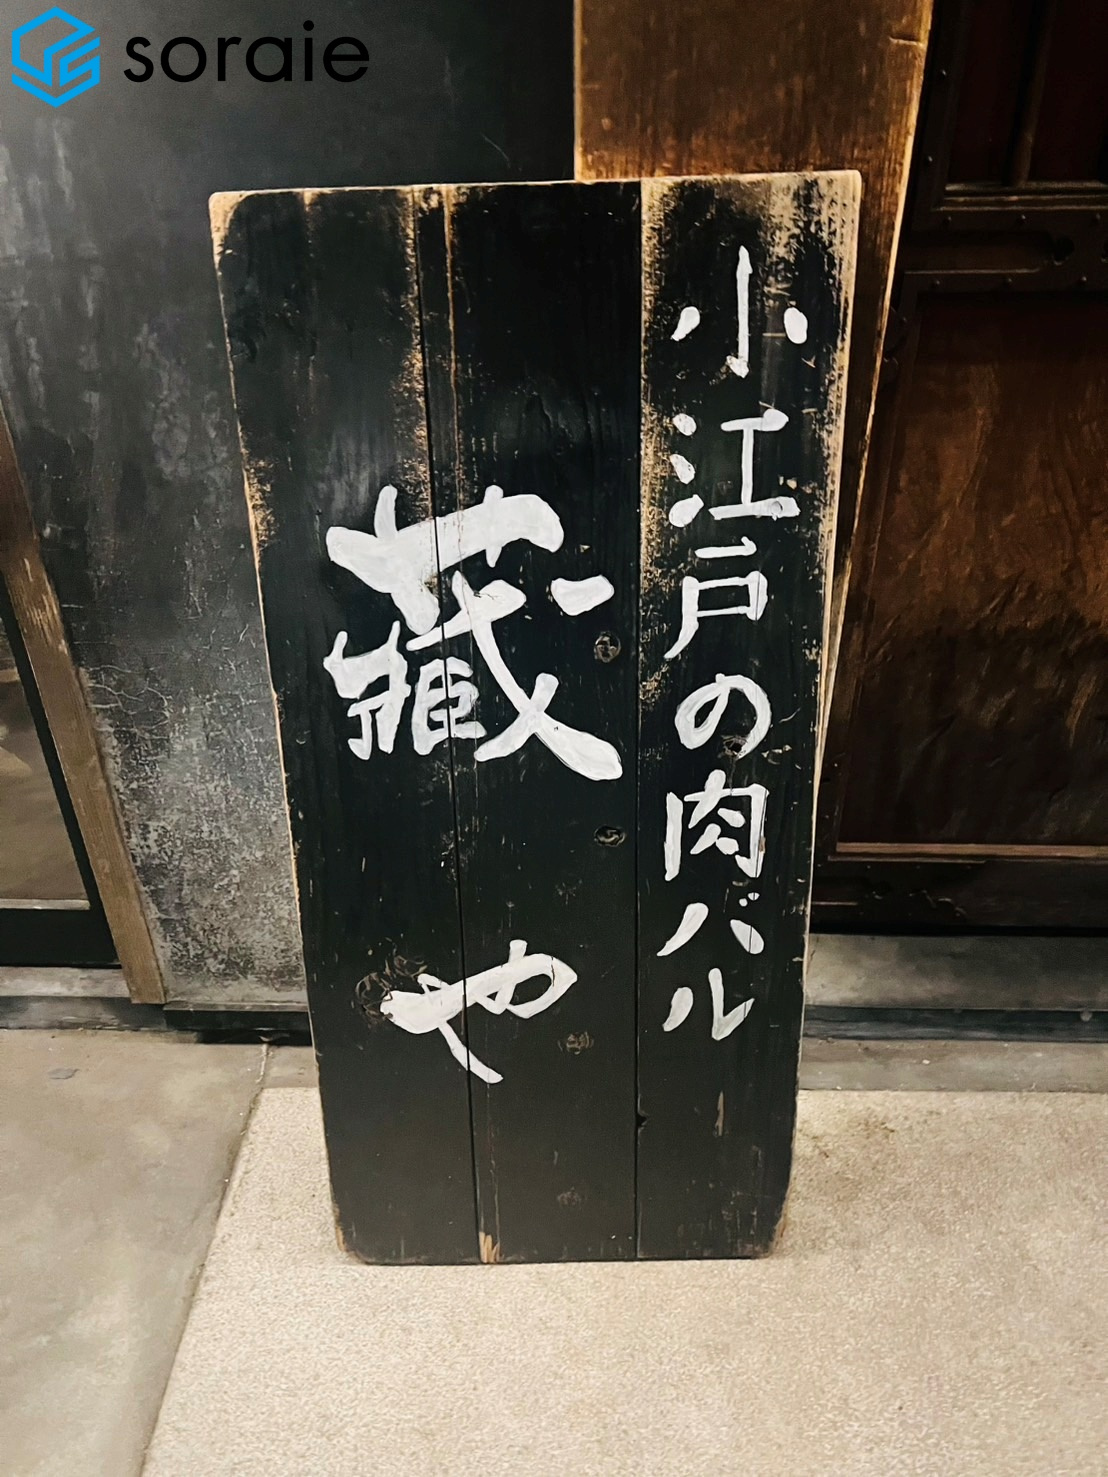 soraie
小江戸の肉バル
藏や